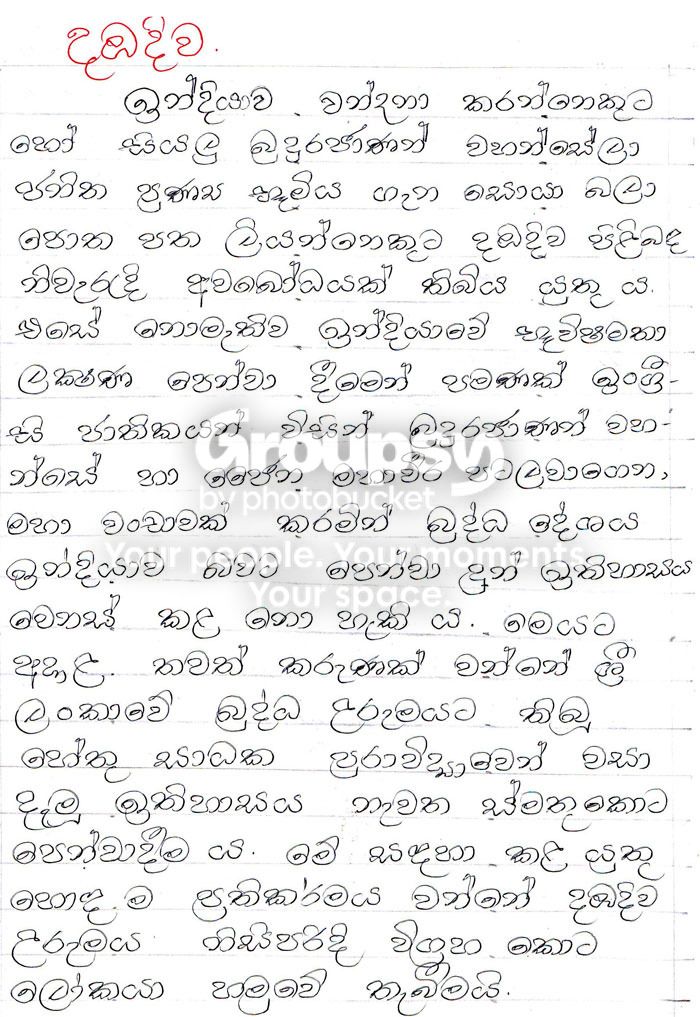 දඹදිව.
ඉන්දියාව වන්දනා කරන්නෙකුට
හෝ සියලු බුදුරජාණන් වහන්සේලා
ජනිත ප්‍රණීත භූමිය ගැන සොයා බලා
පොත පත ලියන්නෙකුට දඹදිව පිළිබඳ
නිවැරුදි අවබෝධයක් තිබිය යුතු ය.
එසේ නොමැතිව ඉන්දියාවේ භූවිෂමතා
ලක්ෂණ පෙන්වා දීමෙන් පමණක් ඉංග්‍රී-
සි ජාතිකයන් විසින් බුදුරජාණන් වහ-
න්සේ හා ජෛන මහාවීර පටලවාගෙන,
මහා වංචාවක් කරමින් බුද්ධ දේශය
ඉන්දියාව බවට පෙන්වා දුන් ඉතිහාසය
වෙනස් කළ නො හැකි ය. මෙයට
අදාළ තවත් කරුණක් වන්නේ ශ්‍රී
ලංකාවේ බුද්ධ උරුමයට තිබූ
හේතු සාධක පුරාවිද්‍යාවෙන් වසා
දැමූ ඉතිහාසය නැවත ස්මතුකොට
පෙන්වාදීම ය. මේ සඳහා කළ යුතු
හොඳ ම ප්‍රතිකර්මය වන්නේ දඹදිව
උරුමය නිසිපරිදි විග්‍රහ කොට
ලෝකයා හමුවේ තැබීමයි.
Groupsy
by photobucket
Your people. Your moments.
Your space.